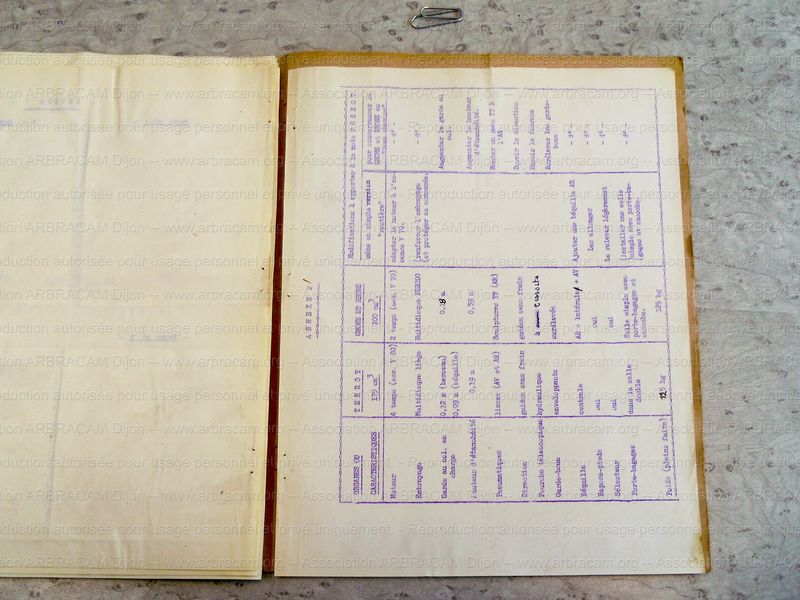 ANNEXE 2
ORGANES OU CARACTERISTIQUES
TERROT 175 cm3
GNOME ET RHONE 200 cm3
Modifications à apporter à la moto TERROT
même en simple version "routière"
pour concurrencer la GNOME et RHONE en "tous chemins"
Moteur
4 temps (ess. V 80)
2 temps (ess. V 70)
adapter le moteur à l'essence V 70.
- d° -
Embrayage
Multidisque liège
Multidisque FERODO
(renforcer l'embrayage (et protéger sa commande.
- d° -
Garde au sol, en charge
0,12 m (berceau) 0,09 m (béquille)
0,18 m
Augmenter la garde au sol.
Hauteur d'étanchéité
0,19 m
0,39 m
Augmenter la hauteur d'étanchéité.
Pneumatiques
lisses (AV et AR)
Sculptures TT (AR)
Monter un pneu TT à l'AR.
Direction
guidon sans frein
guidon sans frein
Durcir la direction
Fourche télescopique
hydraulique
à
Durcir la fourche
Garde-boue
enveloppants
surélevés
Surélever les garde-boue
Béquille
centrale
AR + latérale + AV
Ajouter une béquille AR
- d° -
Repose-pieds
oui
oui
Les allonger
- d° -
Sélecteur
oui
oui
Le relever légèrement
- d° -
Porte-bagages
dans la selle double
Selle simple avec porte-bagages et sacoche.
(installer une selle (simple avec porte-ba- (gages et sacoche.
- d° -
Poids (pleins faits)
kg
125 kg
Reproduction autorisée pour usage personnel et privé uniquement.
Association ARBRACAM Dijon -- www.arbracam.org --